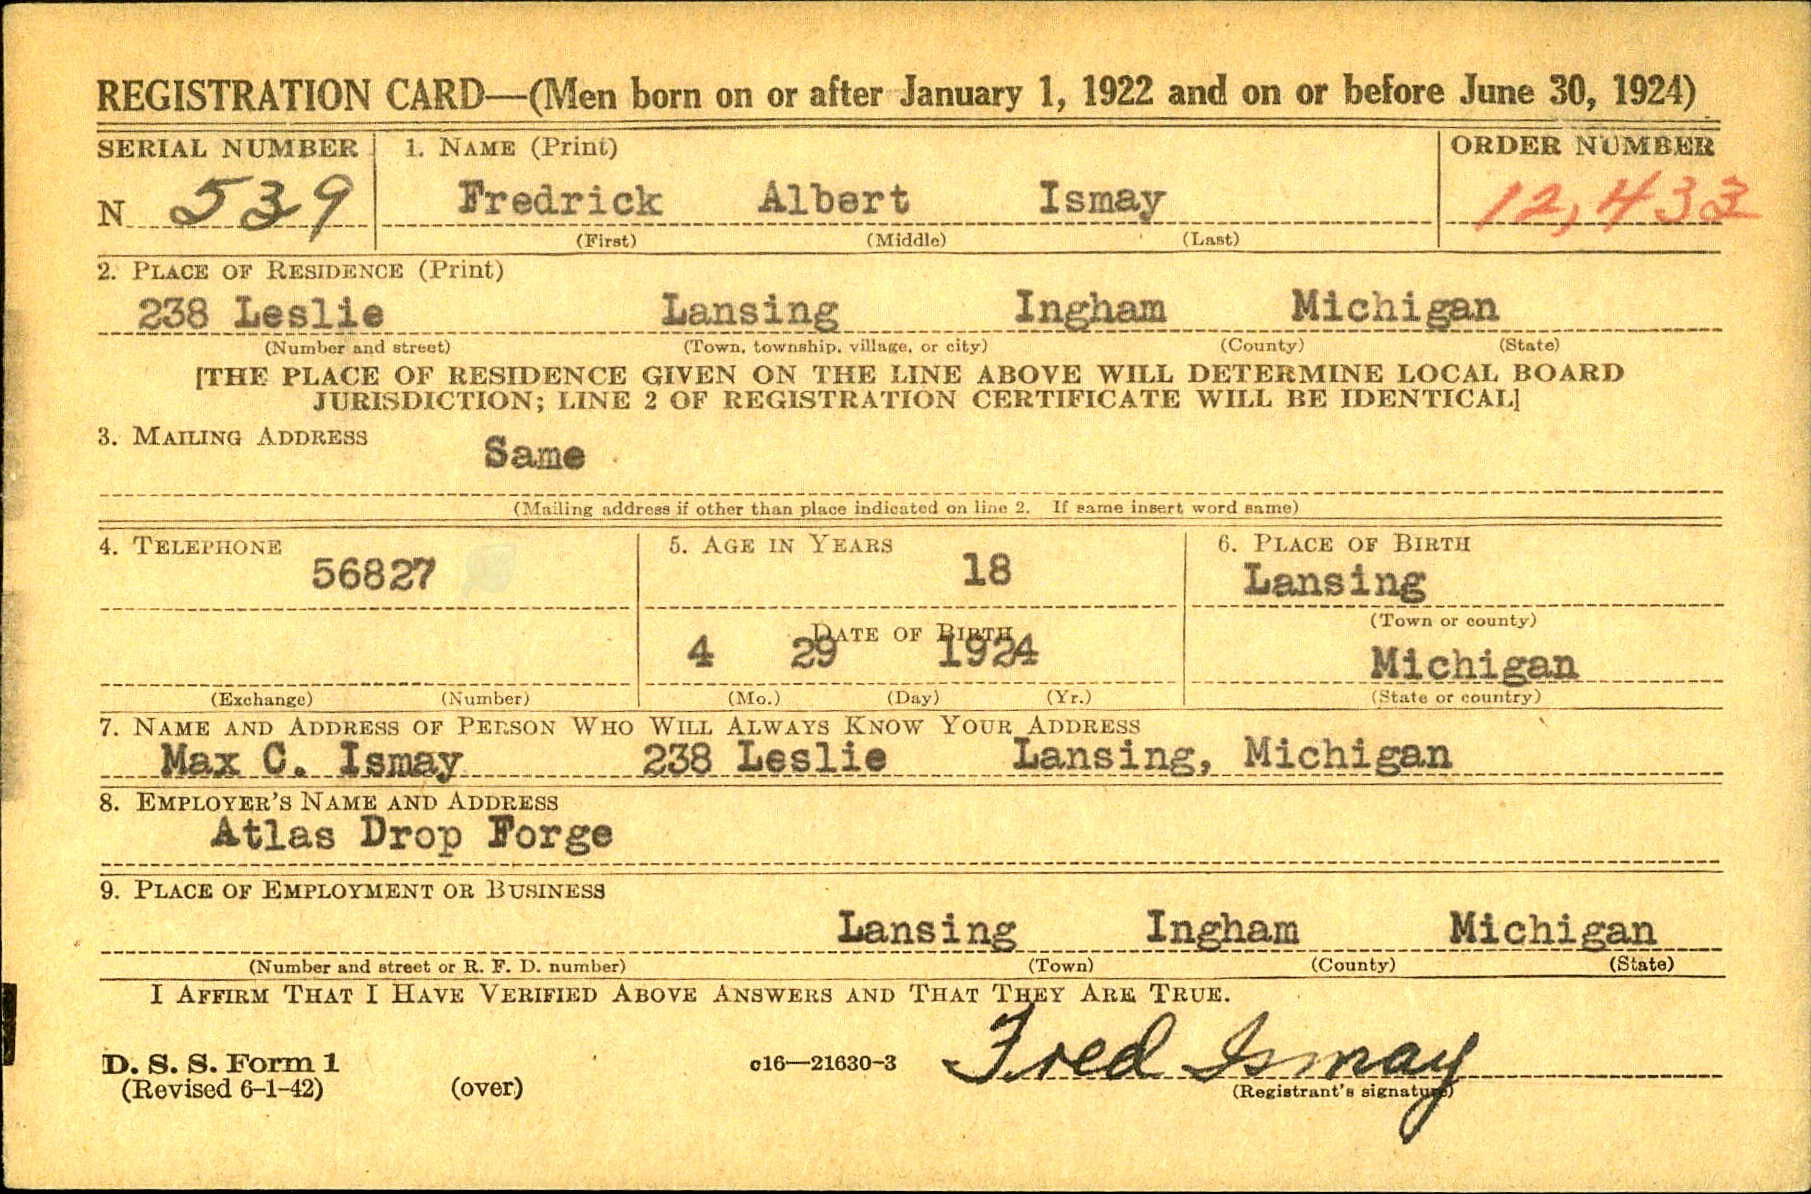 REGISTRATION CARD—(Men born on or after January 1, 1922 and on or before June 30, 1924)
SERIAL NUMBER 1. NAME (Print) ORDER NUMBER
N 539 Fredrick Albert Ismay 12,433
(First) (Middle) (Last)
2. PLACE OF RESIDENCE (Print)
238 Leslie Lansing Ingham Michigan
(Number and street) (Town, township, village, or city) (County) (State)
[THE PLACE OF RESIDENCE GIVEN ON THE LINE ABOVE WILL DETERMINE LOCAL BOARD
JURISDICTION; LINE 2 OF REGISTRATION CERTIFICATE WILL BE IDENTICAL]
3. MAILING ADDRESS
Same
(Mailing address if other than place indicated on line 2. If same insert word same)
4. TELEPHONE 5. AGE IN YEARS 6. PLACE OF BIRTH
56827 18 Lansing
(Town or county)
DATE OF BIRTH
4 29 1924 Michigan
(Exchange) (Number) (Mo.) (Day) (Yr.) (State or country)
7. NAME AND ADDRESS OF PERSON WHO WILL ALWAYS KNOW YOUR ADDRESS
Max C. Ismay 238 Leslie Lansing, Michigan
8. EMPLOYER'S NAME AND ADDRESS
Atlas Drop Forge
9. PLACE OF EMPLOYMENT OR BUSINESS
Lansing Ingham Michigan
(Number and street or R. F. D. number) (Town) (County) (State)
I AFFIRM THAT I HAVE VERIFIED ABOVE ANSWERS AND THAT THEY ARE TRUE.
D. S. S. Form 1 c16—21630-3 Fred Ismay
(Revised 6-1-42) (over) (Registrant's signature)